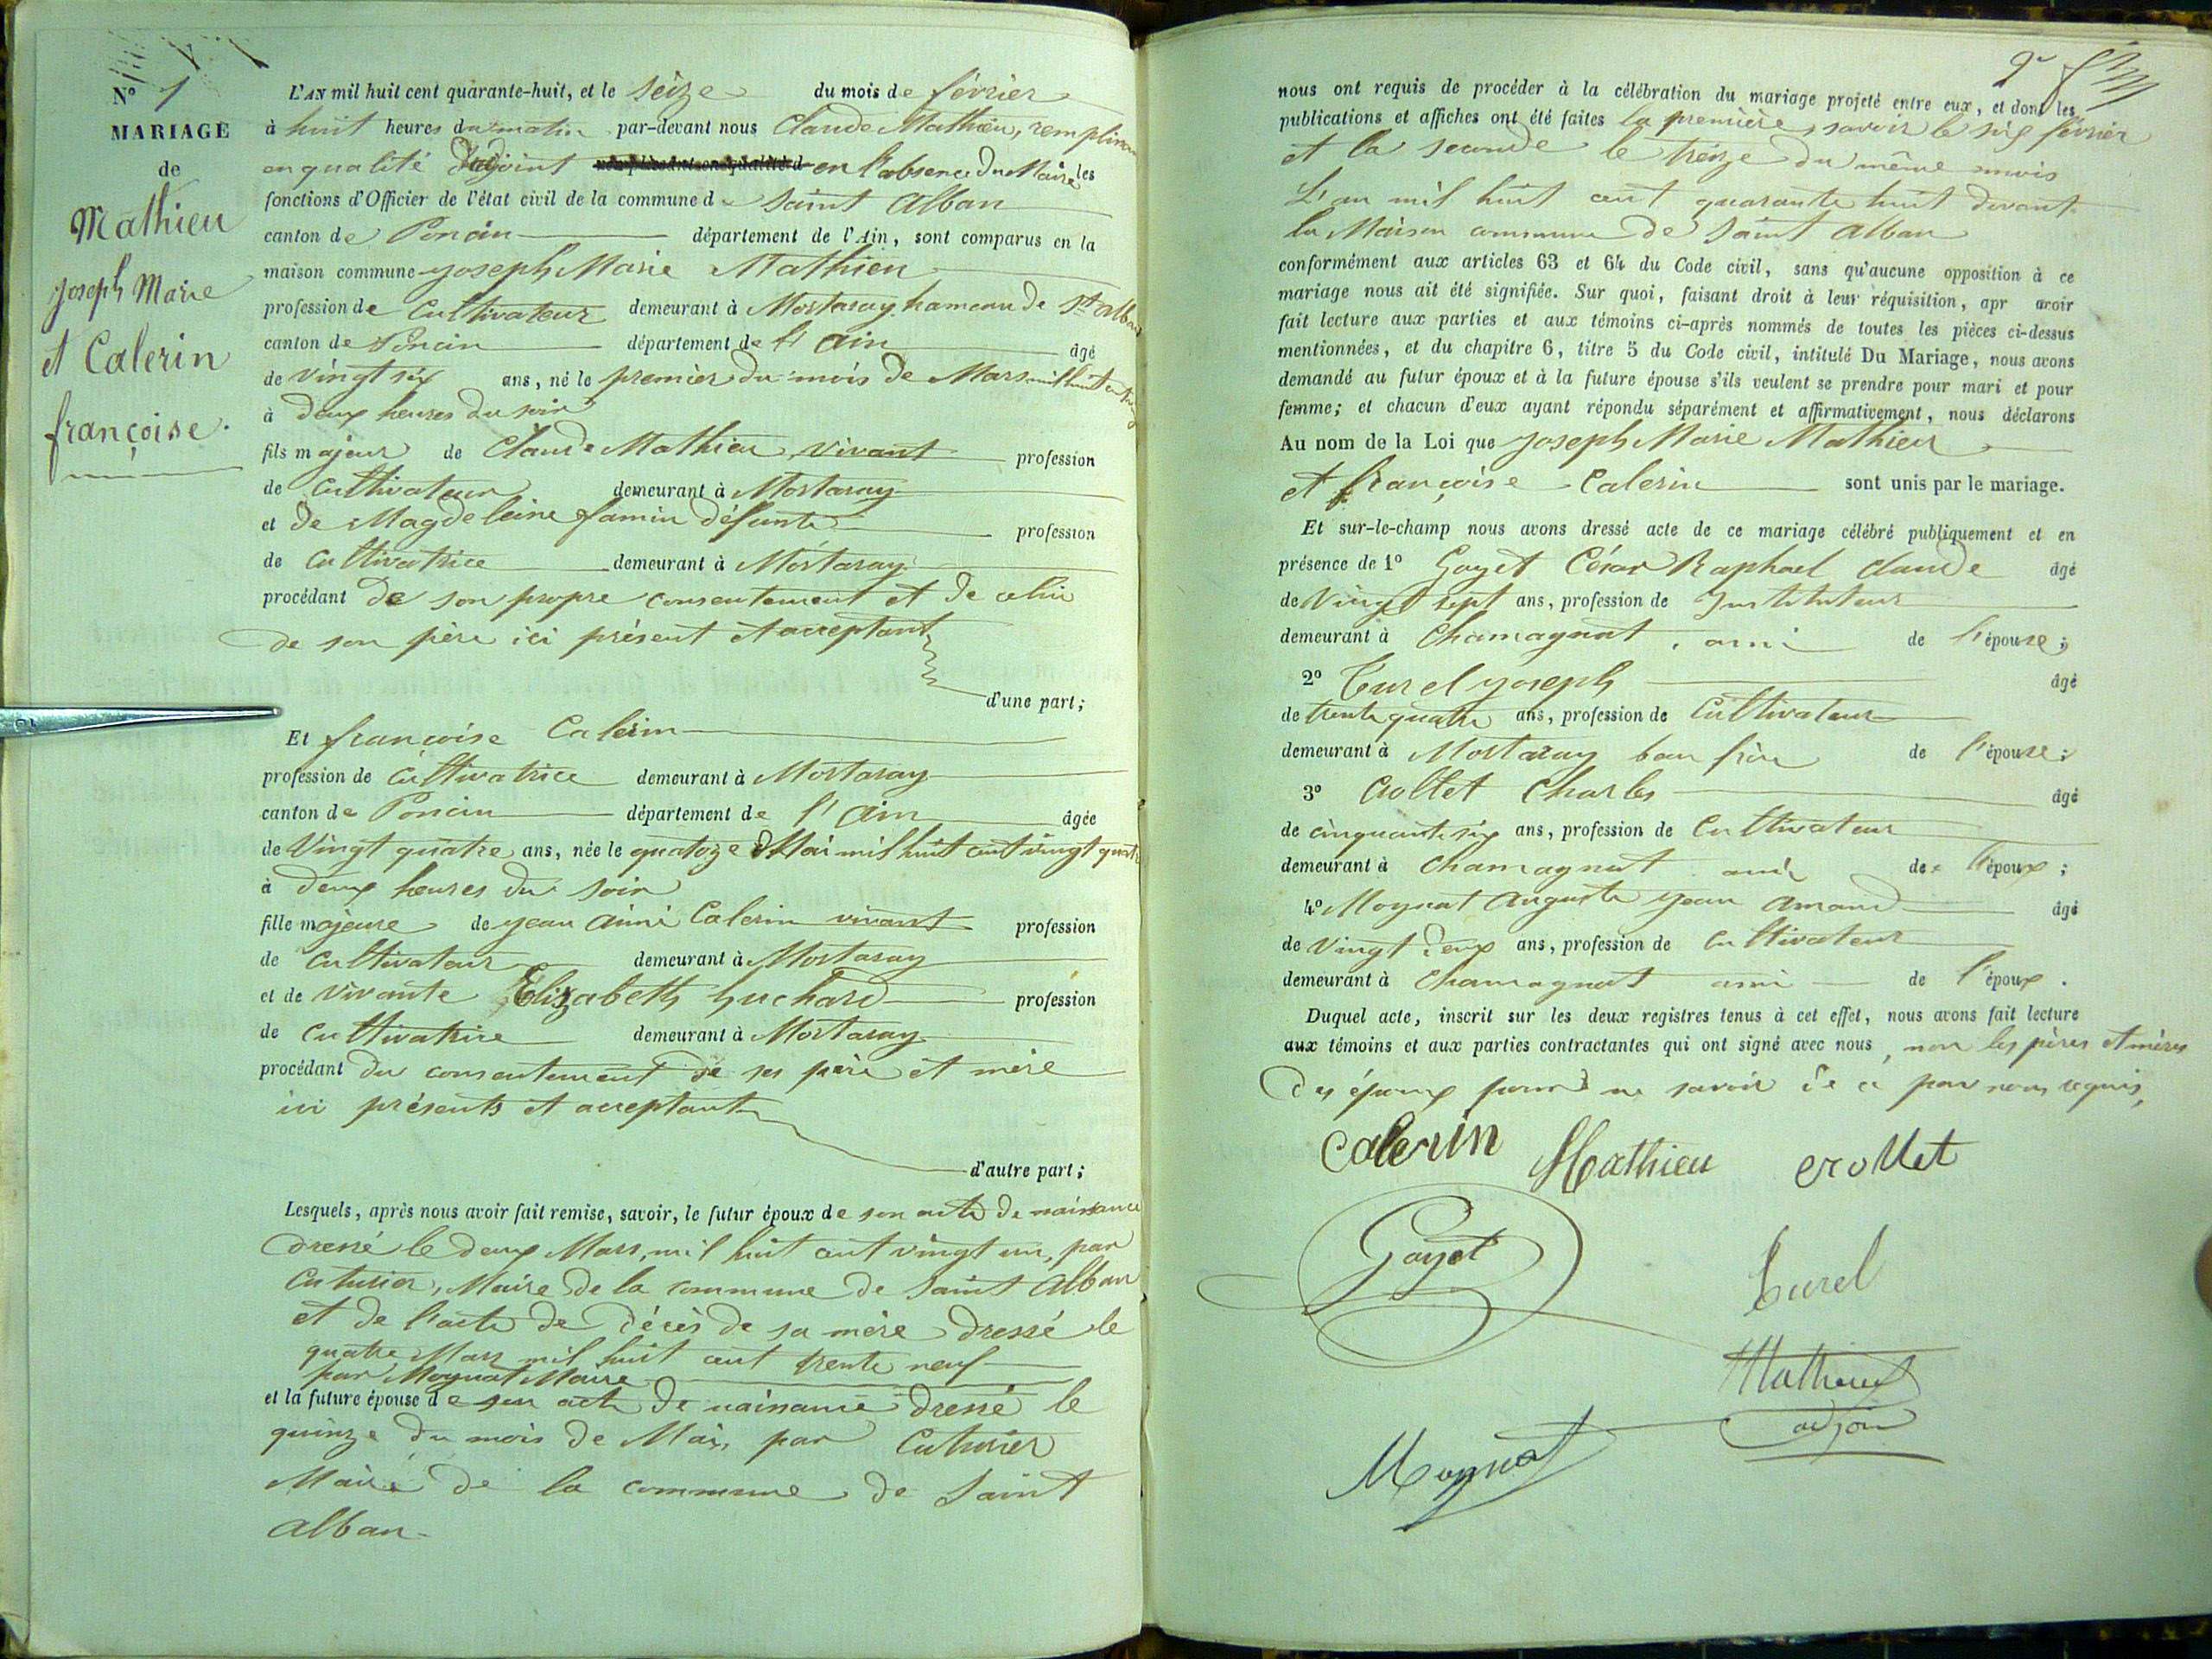 N° 1
MARIAGE
de
Mathieu
Joseph Marie
et Calerin
françoise.
L'AN mil huit cent quarante-huit, et le seize du mois de février
à huit heures du matin par-devant nous Claude Mathieu, remplissant
en qualité d'adjoint en l'absence du Maire les
fonctions d'Officier de l'état civil de la commune de Saint Alban
canton de Poncin département de l'Ain, sont comparus en la
maison commune Joseph Marie Mathieu
profession de Cultivateur demeurant à Mortaray hameau de St alban
canton de Poncin département de l'Ain âgé
de vingt six ans, né le premier du mois de Mars mil huit cent
à deux heures du soir
fils majeur de Claude Mathieu, vivant profession
de cultivateur demeurant à Mortaray
et de Magdeleine famin défunte profession
de cultivatrice demeurant à Mortaray
procédant de son propre consentement et de celui
de son père ici présent et acceptant
d'une part;
Et françoise Calerin
profession de Cultivatrice demeurant à Mortaray
canton de Poncin département de l'Ain âgée
de Vingt quatre ans, née le quatorze Mai mil huit cent vingt quatre
à deux heures du soir
fille majeure de jean aimé Calerin vivant profession
de Cultivateur demeurant à Mortaray
et de vivante Elizabeth huchard profession
de cultivatrice demeurant à Mortaray
procédant du consentement de ses père et mère
ici présents et acceptant
d'autre part;
Lesquels, après nous avoir fait remise, savoir, le futur époux de son acte de naissance
dressé le deux Mars, mil huit cent vingt un, par
Cuturier, Maire de la commune de Saint Alban
et de l'acte de décès de sa mère dressé le
quatre Mars mil huit cent trente neuf
par Moynat Maire
et la future épouse de son acte de naissance dressé le
quinze du mois de Mai, par Cuturier
Maire de la commune de Saint
Alban.
nous ont requis de procéder à la célébration du mariage projeté entre eux, et dont les
publications et affiches ont été faites la première, savoir le six février
et la seconde le treize du même mois
L'an mil huit cent quarante huit devant
la Maison commune de Saint Alban
conformément aux articles 63 et 64 du Code civil, sans qu'aucune opposition à ce
mariage nous ait été signifiée. Sur quoi, faisant droit à leur réquisition, apr avoir
fait lecture aux parties et aux témoins ci-après nommés de toutes les pièces ci-dessus
mentionnées, et du chapitre 6, titre 5 du Code civil, intitulé Du Mariage, nous avons
demandé au futur époux et à la future épouse s'ils veulent se prendre pour mari et pour
femme; et chacun d'eux ayant répondu séparément et affirmativement, nous déclarons
Au nom de la Loi que Joseph Marie Mathieu
et françoise Calerin sont unis par le mariage.
Et sur-le-champ nous avons dressé acte de ce mariage célébré publiquement et en
présence de 1° Goyet César Raphael Claude âgé
de Vingt sept ans, profession de Instituteur
demeurant à Chamagnat, ami de l'épouse;
2° Curel joseph âgé
de trente quatre ans, profession de Cultivateur
demeurant à Mortaray beau frère de l'épouse;
3° Crollet Charles âgé
de cinquante six ans, profession de Cultivateur
demeurant à Chamagnat ami de l'époux;
4° Moynat Auguste jean Amand âgé
de vingt deux ans, profession de Cultivateur
demeurant à Chamagnat ami de l'époux.
Duquel acte, inscrit sur les deux registres tenus à cet effet, nous avons fait lecture
aux témoins et aux parties contractantes qui ont signé avec nous, non les pères et mères
des époux pour ne savoir de ce par nous requis,
Calerin Mathieu crollet
Goyet
Curel
Mathieu
adjoin
Moynat